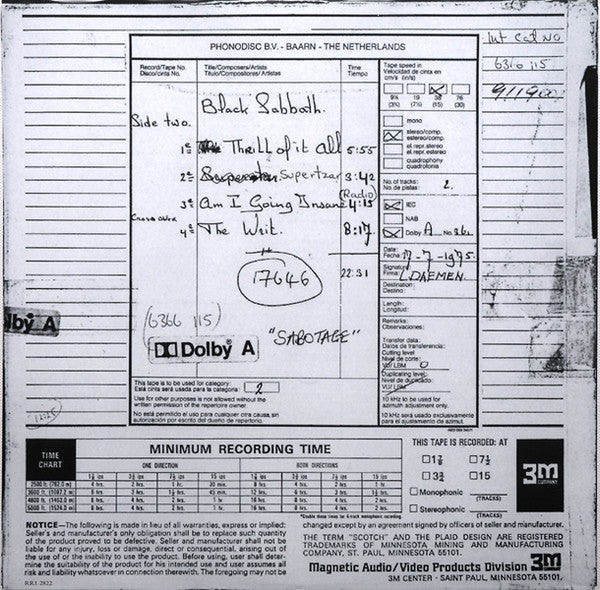 Int Cat No
6366 115
9119001
PHONODISC B.V. - BAARN - THE NETHERLANDS
Record/Tape No. Title/Composers/Artists Time
Disco/cinta No. Título/Compositores/Artistas Tiempo
Black Sabbath.
Side two.
1e Thrill of it all 5:55
2e Supertzar 3:42
(Radio)
3e Am I Going Insane 4:15
4e The Writ. 8:17
22:31
17646
(6366 115)
"SABOTAGE"
Dolby A
lby A
This tape is to be used for category:
Esta cinta será usada para la categoría: 2
Use for other purposes is not allowed without the
written permission of the repertoire owner.
No está permitido el uso para cualquier otra causa, sin
autorización por escrito del dueño de repertorio.
Tape speed in
Velocidad de cinta en
cm/s (in/s)
9½ 19 38 76
(3¾) (7½) (15) (30)
mono
stereo/comp.
estereo/comp.
el.repr.stereo
el.repr.estereo
quadraphony
quadrofonia
No. of tracks:
No. de pistas: 2.
IEC
NAB
Dolby A No.
Date:
Fecha: 17-7-1975
Signature
Firma: L. DAEMEN.
Destination:
Destino:
Length:
Longitud:
Remarks:
Observaciones:
Transfer data:
Datos de transferencia:
Cutting level
Nivel de corte:
VU/LBM 0
Duplicating level:
Nivel de duplicado:
VU/LBM
10 kHz to be used for
azimuth adjustment only.
10 kHz será usado exclusivamente
para el ajustamiento de azimut.
TIME
CHART
MINIMUM RECORDING TIME
ONE DIRECTION BOTH DIRECTIONS
1⅞ ips 3¾ ips 7½ ips 15 ips 1⅞ ips 3¾ ips 7½ ips 15 ips
2500 ft. (762.0 m) 4 hrs. 2 hrs. 1 hr. 30 min. 8 hrs. 4 hrs. 2 hrs. 1 hr.
3600 ft. (1097.2 m) 6 hrs. 3 hrs. 1½ hrs. 45 min. 12 hrs. 6 hrs. 3 hrs. 1½ hrs.
4800 ft. (1463.0 m) 8 hrs. 4 hrs. 2 hrs. 1 hr. 16 hrs. 8 hrs. 4 hrs. 2 hrs.
5000 ft. (1524.0 m) 8 hrs. 4 hrs. 2 hrs. 1 hr. 16 hrs. 8 hrs. 4 hrs. 2 hrs.
*Double these times for 4-track monophonic recording.
THIS TAPE IS RECORDED: AT
1⅞ 7½
3¾ 15
Monophonic
(TRACKS)
Stereophonic
(TRACKS)
3M
COMPANY
NOTICE—The following is made in lieu of all warranties, express or implied:
Seller's and manufacturer's only obligation shall be to replace such quantity
of the product proved to be defective. Seller and manufacturer shall not be
liable for any injury, loss or damage, direct or consequential, arising out of
the use of or the inability to use the product. Before using, user shall deter-
mine the suitability of the product for his intended use and user assumes all
risk and liability whatsoever in connection therewith. The foregoing may not be
changed except by an agreement signed by officers of seller and manufacturer.
THE TERM "SCOTCH" AND THE PLAID DESIGN ARE REGISTERED
TRADEMARKS OF MINNESOTA MINING AND MANUFACTURING
COMPANY, ST. PAUL, MINNESOTA 55101.
Magnetic Audio/Video Products Division 3M
3M CENTER · SAINT PAUL, MINNESOTA 55101
RR1 2822